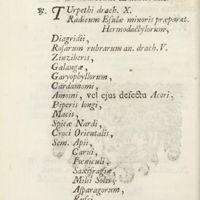 ℞. Turpethi drach. X.
Radicum Esulæ minoris præparat.
Hermodactylorum,
Diagridii,
Rosarum rubrarum an. drach. V.
Zinziberis,
Galangæ,
Garyophyllorum,
Cardamomi,
Amomi, vel ejus defectu Acori,
Piperis longi,
Macis,
Spicæ Nardi,
Croci Orientalis,
Sem. Apii,
Carui,
Fœniculi,
Saxifragiæ,
Milii Solis,
Asparagorum,
Rusci,